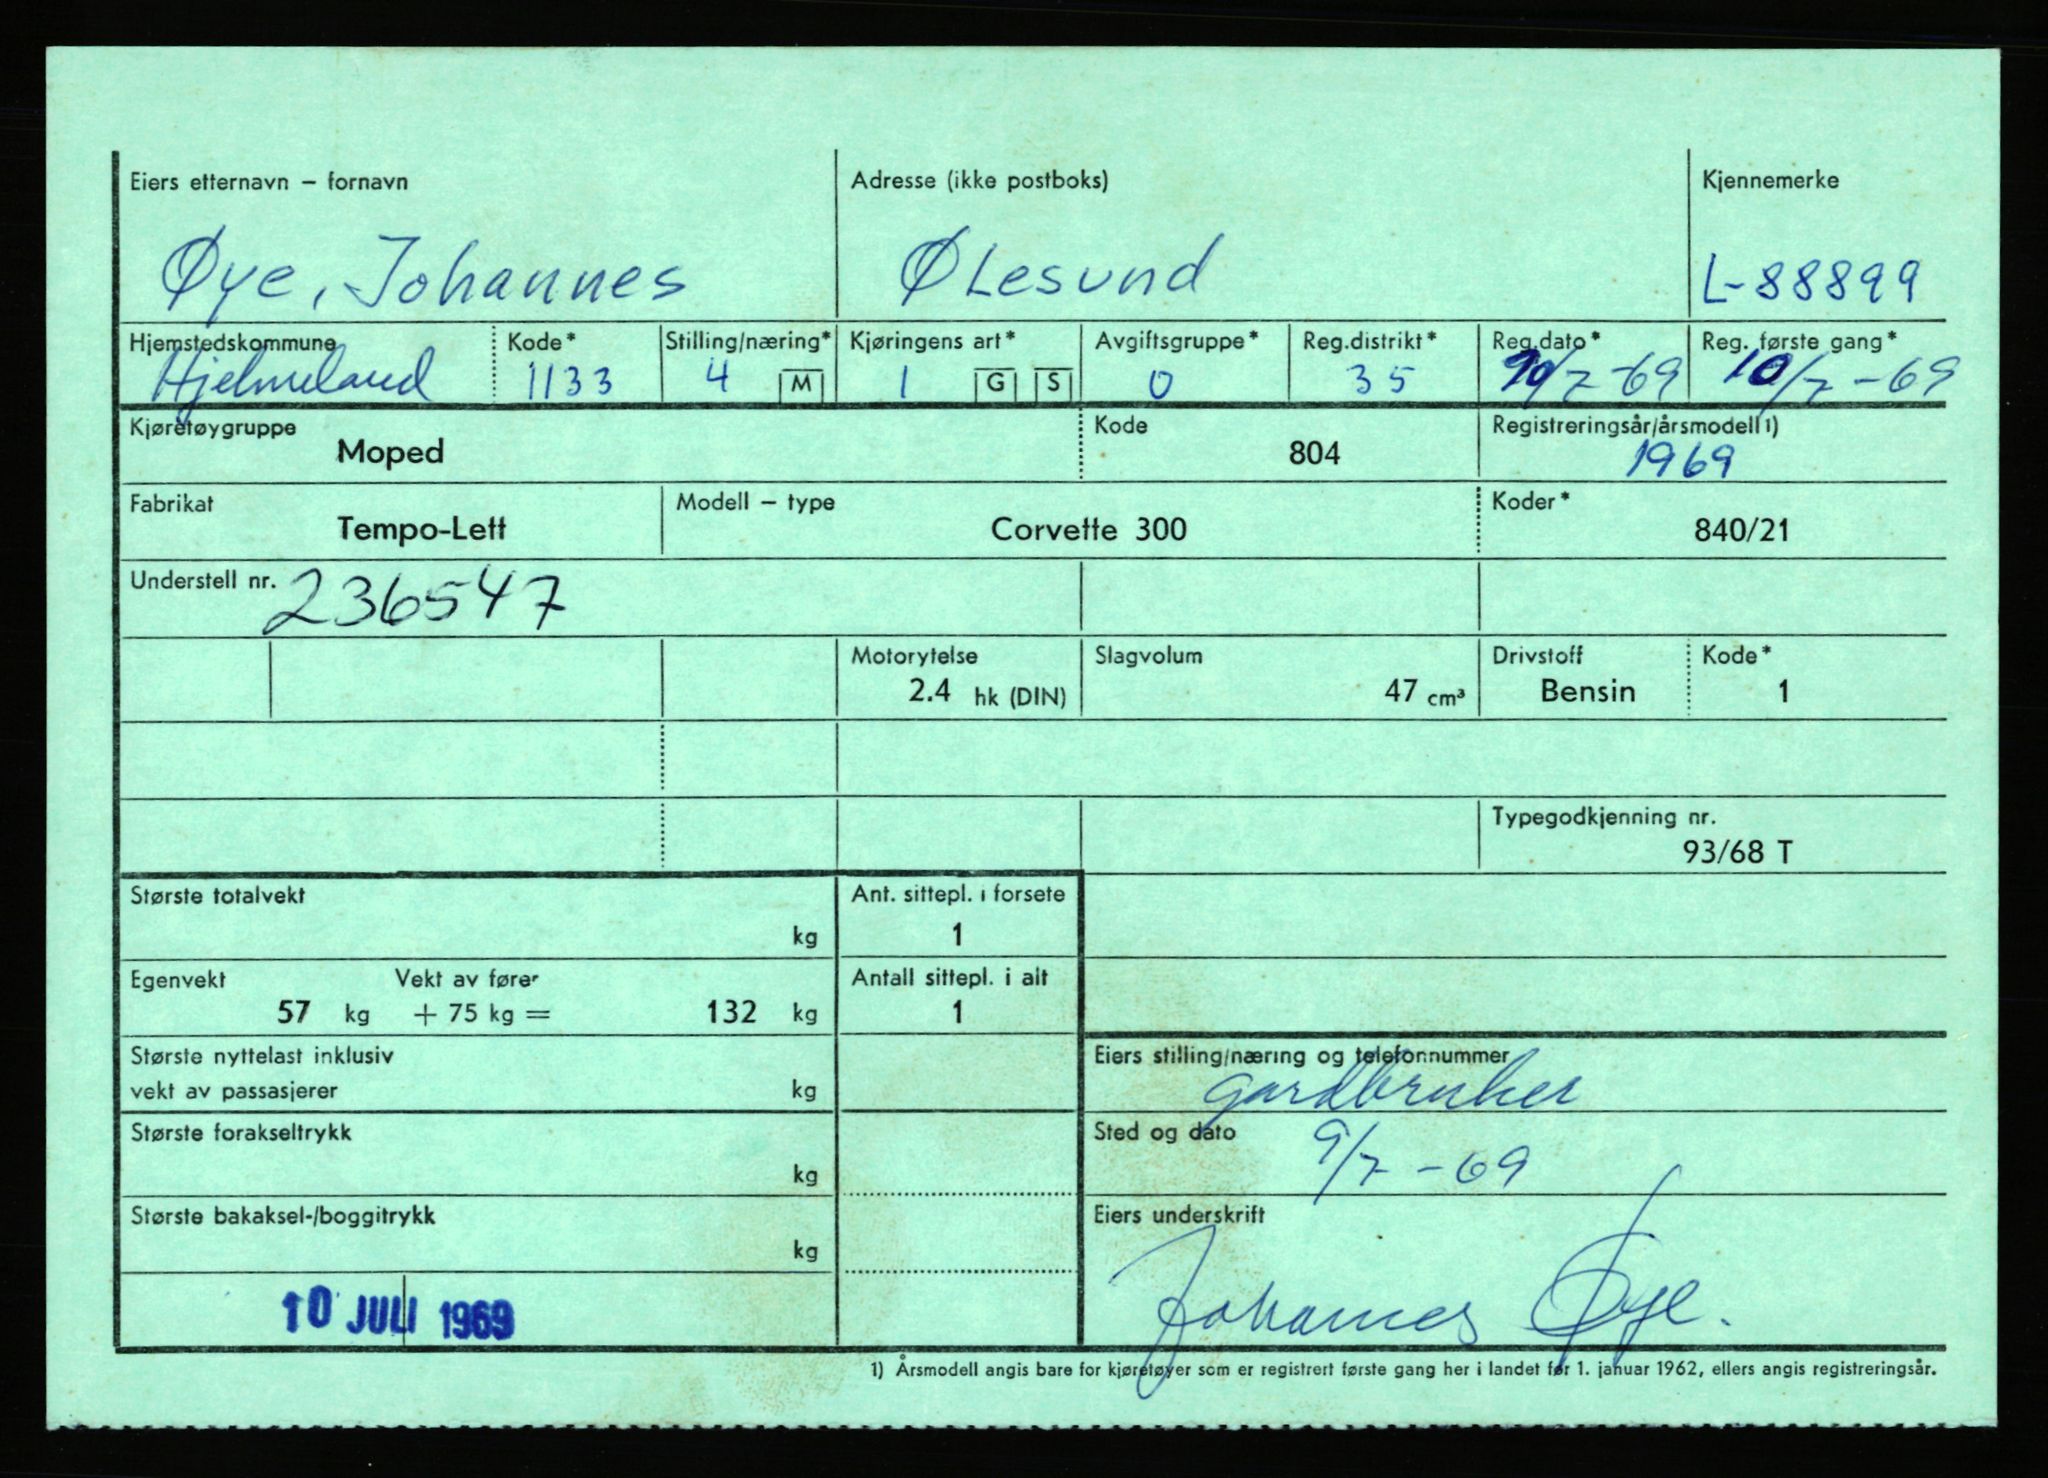 Eiers etternavn – fornavn Adresse (ikke postboks) Kjennemerke
Øye, Johannes Ølesund L-88899
Hjemstedskommune Kode* Stilling/næring* Kjøringens art* Avgiftsgruppe* Reg.distrikt* Reg.dato* Reg. første gang*
Hjelmeland 1133 4 M 1 G S 0 35 10/7-69 10/7-69
Kjøretøygruppe Kode Registreringsår/årsmodell 1)
Moped 804 1969
Fabrikat Modell – type Koder*
Tempo-Lett Corvette 300 840/21
Understell nr. 236547
Motorytelse Slagvolum Drivstoff Kode*
2.4 hk (DIN) 47 cm³ Bensin 1
Typegodkjenning nr.
93/68 T
Største totalvekt Ant. sittepl. i forsete
kg 1
Egenvekt Vekt av fører Antall sittepl. i alt
57 kg + 75 kg = 132 kg 1
Største nyttelast inklusiv Eiers stilling/næring og telefonnummer
vekt av passasjerer kg gardbruker
Største forakseltrykk Sted og dato
kg 9/7-69
Største bakaksel-/boggitrykk Eiers underskrift
kg
10 JULI 1969 Johannes Øye.
1) Årsmodell angis bare for kjøretøyer som er registrert første gang her i landet før 1. januar 1962, ellers angis registreringsår.